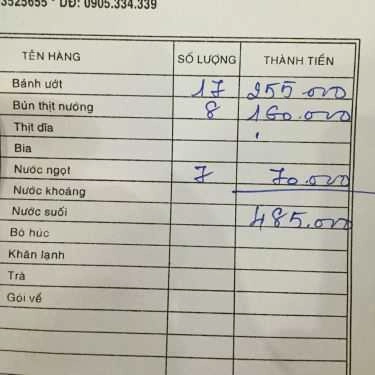 3525655 * DĐ: 0905.334.339
TÊN HÀNG SỐ LƯỢNG THÀNH TIỀN
Bánh ướt 17 255.000
Bún thịt nướng 8 160.000
Thịt dĩa
Bia
Nước ngọt 7 70.000
Nước khoáng
Nước suối 485.000
Bò húc
Khăn lạnh
Trà
Gói về